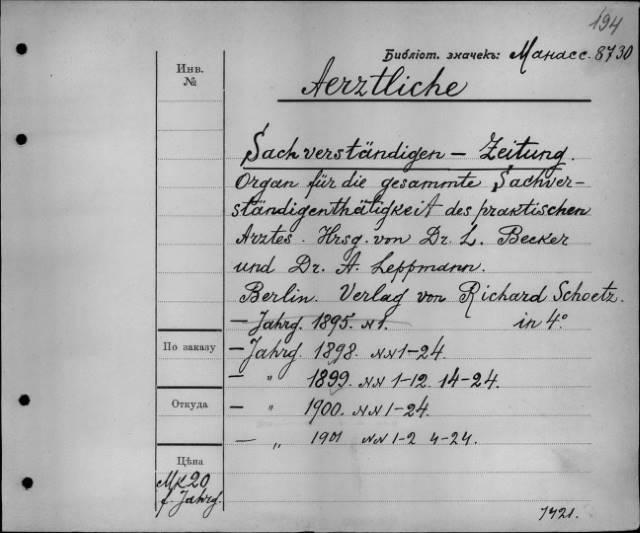 194
Библіот. значекъ: Манасс. 8730
Инв. №
Aerztliche
Sachverständigen – Zeitung.
Organ für die gesammte Sachver-
ständigenthätigkeit des praktischen
Arztes. Hrsg. von Dr. L. Becker
und Dr. A. Leppmann.
Berlin. Verlag von Richard Schoetz.
– Jahrg. 1895. N 1. in 4°
По заказу
– Jahrg. 1898. NN 1-24.
– " 1899. NN 1-12. 14-24.
Откуда
– " 1900. NN 1-24.
– " 1901 NN 1-2 4-24.
Цѣна
Mk 20
f. Jahrg.
1421.